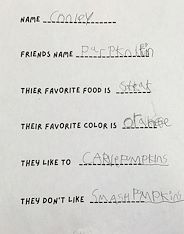 NAME Conley
FRIENDS NAME
THIER FAVORITE FOOD IS
THEIR FAVORITE COLOR IS orange
THEY LIKE TO CARVE PUMPKINS
THEY DON'T LIKE SMASH PMPKINS